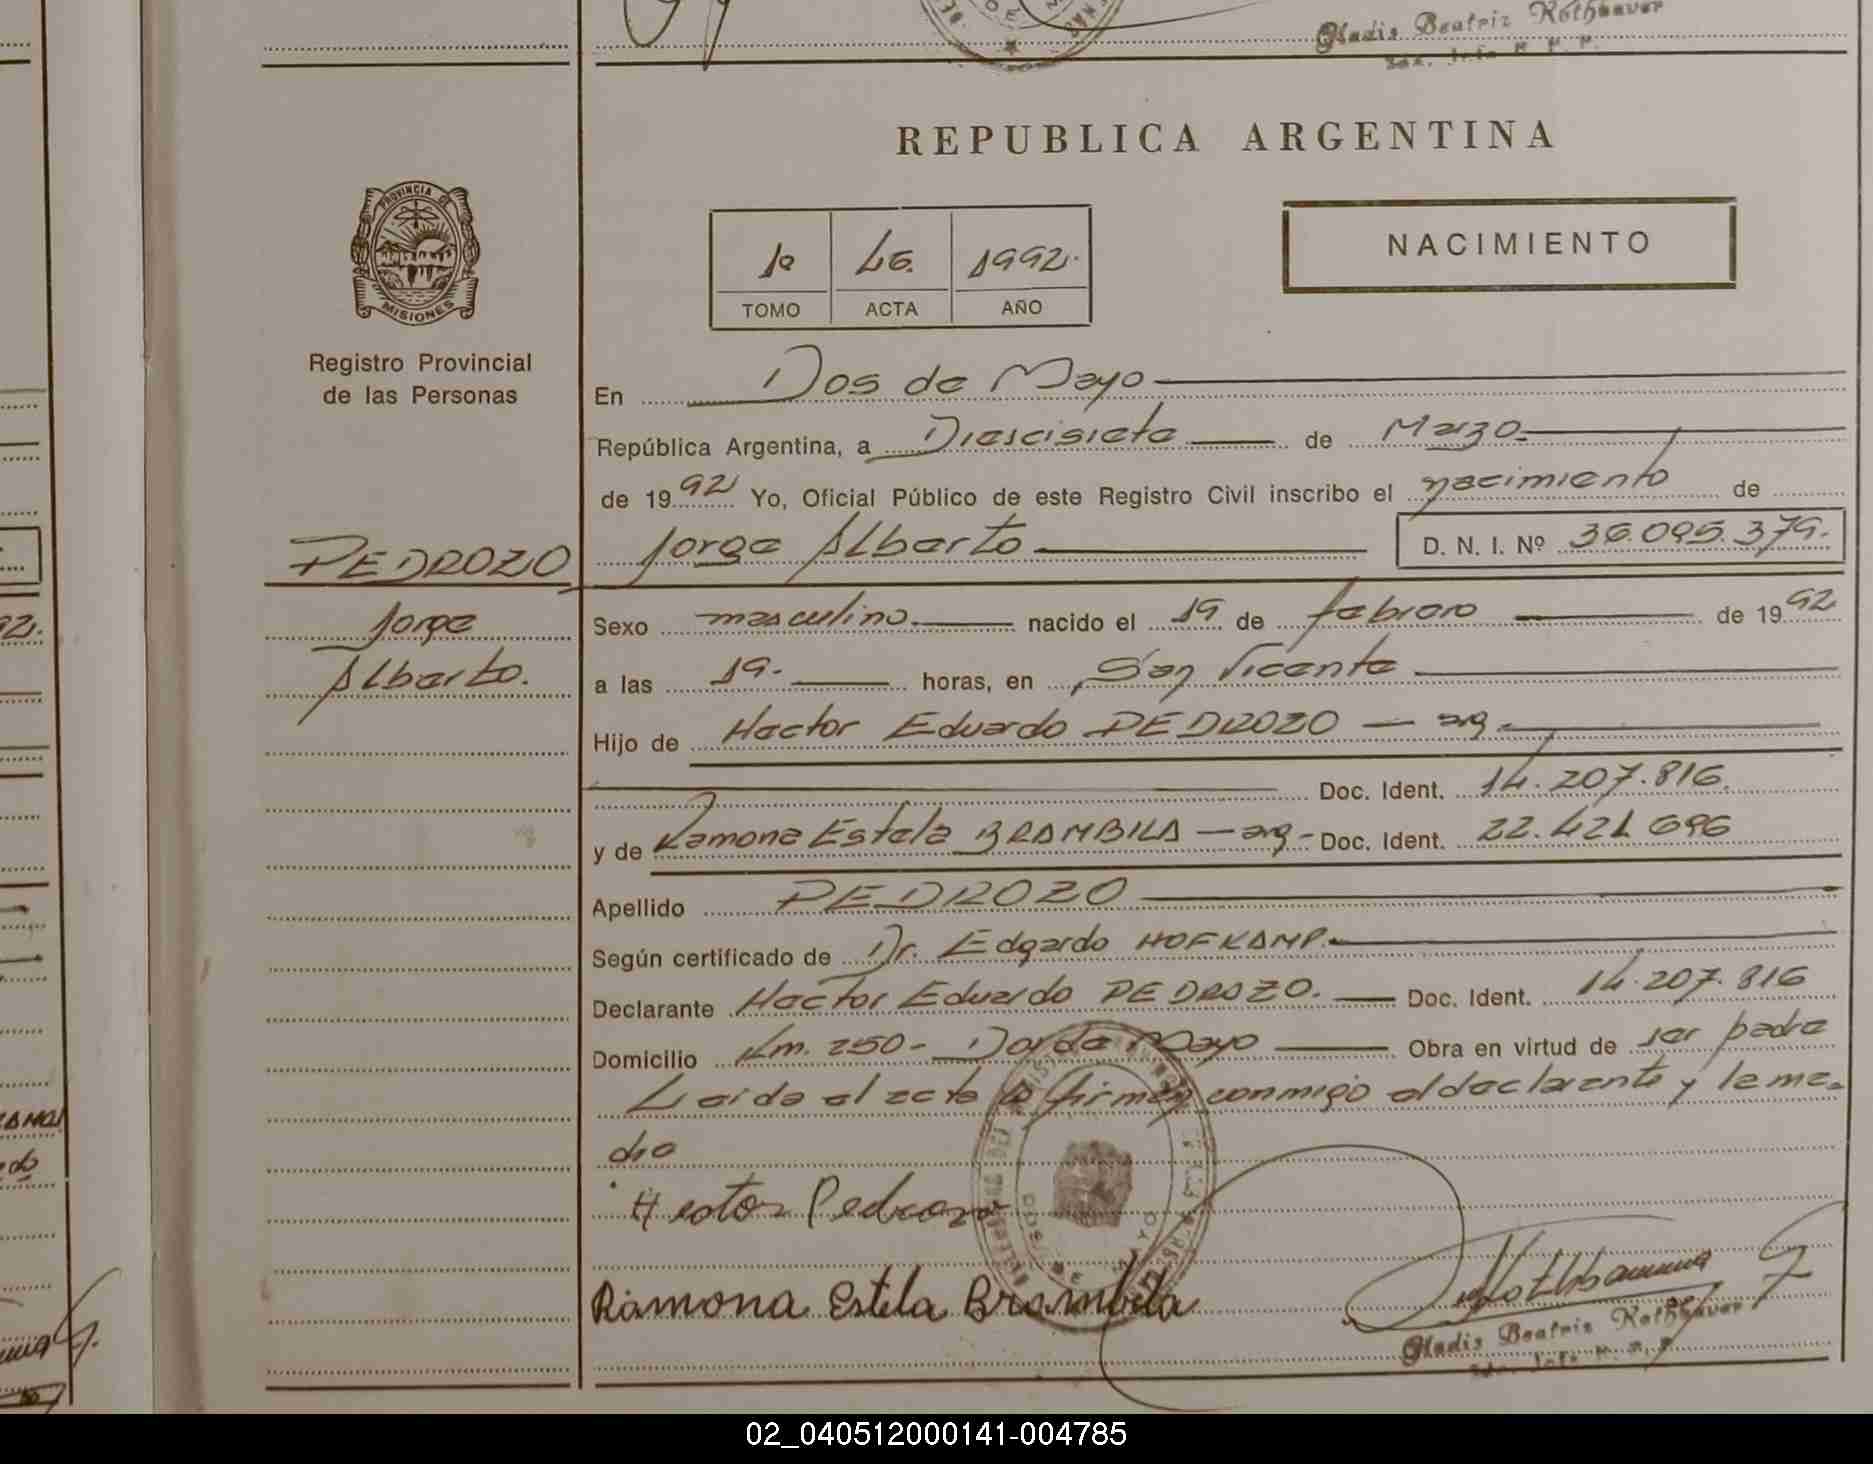 Gladis Beatriz Rothbauer
REPUBLICA ARGENTINA
PROVINCIA DE
MISIONES
Registro Provincial
de las Personas
1º 46. 1992.
TOMO ACTA AÑO
NACIMIENTO
En Dos de Mayo
República Argentina, a Diescisiete de Marzo
de 1992 Yo, Oficial Público de este Registro Civil inscribo el nacimiento de
PEDROZO
Jorge Alberto
D. N. I. Nº 36.095.379.
Jorge
Alberto.
Sexo masculino. nacido el 19 de febrero de 1992
a las 19. horas, en San Vicente
Hijo de Hector Eduardo PEDROZO — arg.
Doc. Ident. 14.207.816.
y de Ramona Estela BRAMBILA — arg - Doc. Ident. 22.421 696
Apellido PEDROZO
Según certificado de Dr. Edgardo HOFKAMP.
Declarante Hector Eduardo PEDROZO. Doc. Ident. 14.207.816
Domicilio Km. 250 - Dos de Mayo Obra en virtud de ser padre
Leida el acta la firman conmigo el declarante y la ma-
dre
Hector Pedrozo
Ramona Estela Brambila
Gladis Beatriz Rothbauer
02_040512000141-004785